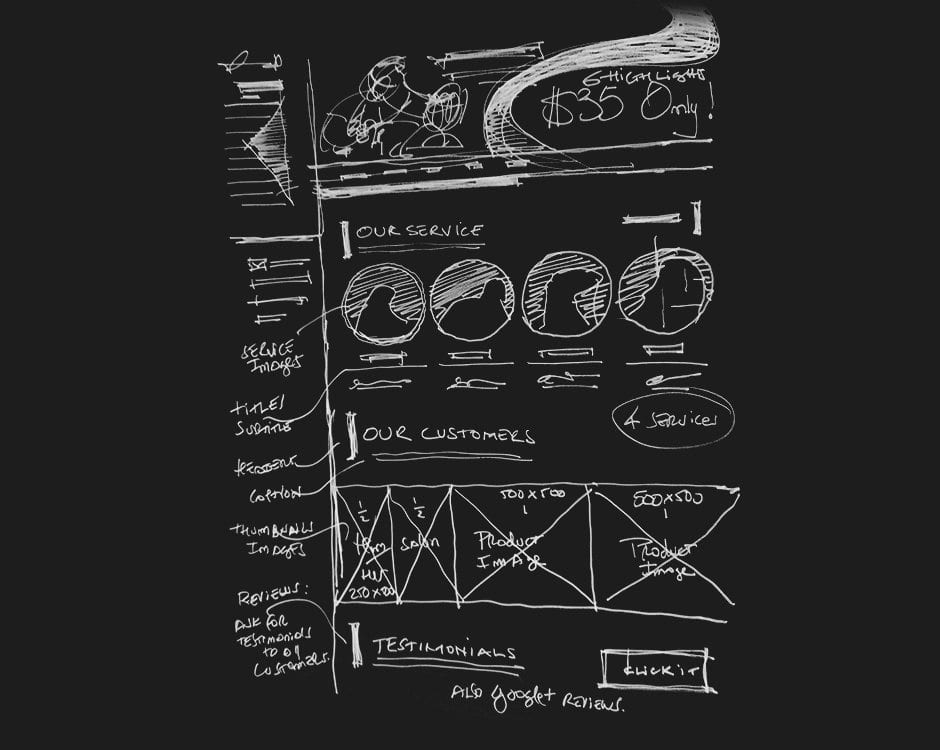 6 HIGHLIGHTS
$35 Only!
OUR SERVICE
SERVICE
IMAGES
TITLES
SUBTITLE
4 SERVICES
OUR CUSTOMERS
CAPTION
THUMBNAILS
IMAGES
1/2
1/2
500 X 500
500 X 500
Salon
Product
Image
Product
Image
REVIEWS:
ASK FOR
TESTIMONIALS
TO
CUSTOMERS.
TESTIMONIALS
CLICK IT
ALSO Google+ REVIEWS.